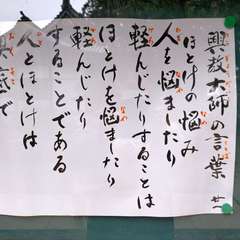 興教大師の言葉
ほとけの悩み
人を悩ましたり
軽んじたりすることは
ほとけを悩ましたり
軽んじたり
することである
人とほとけは